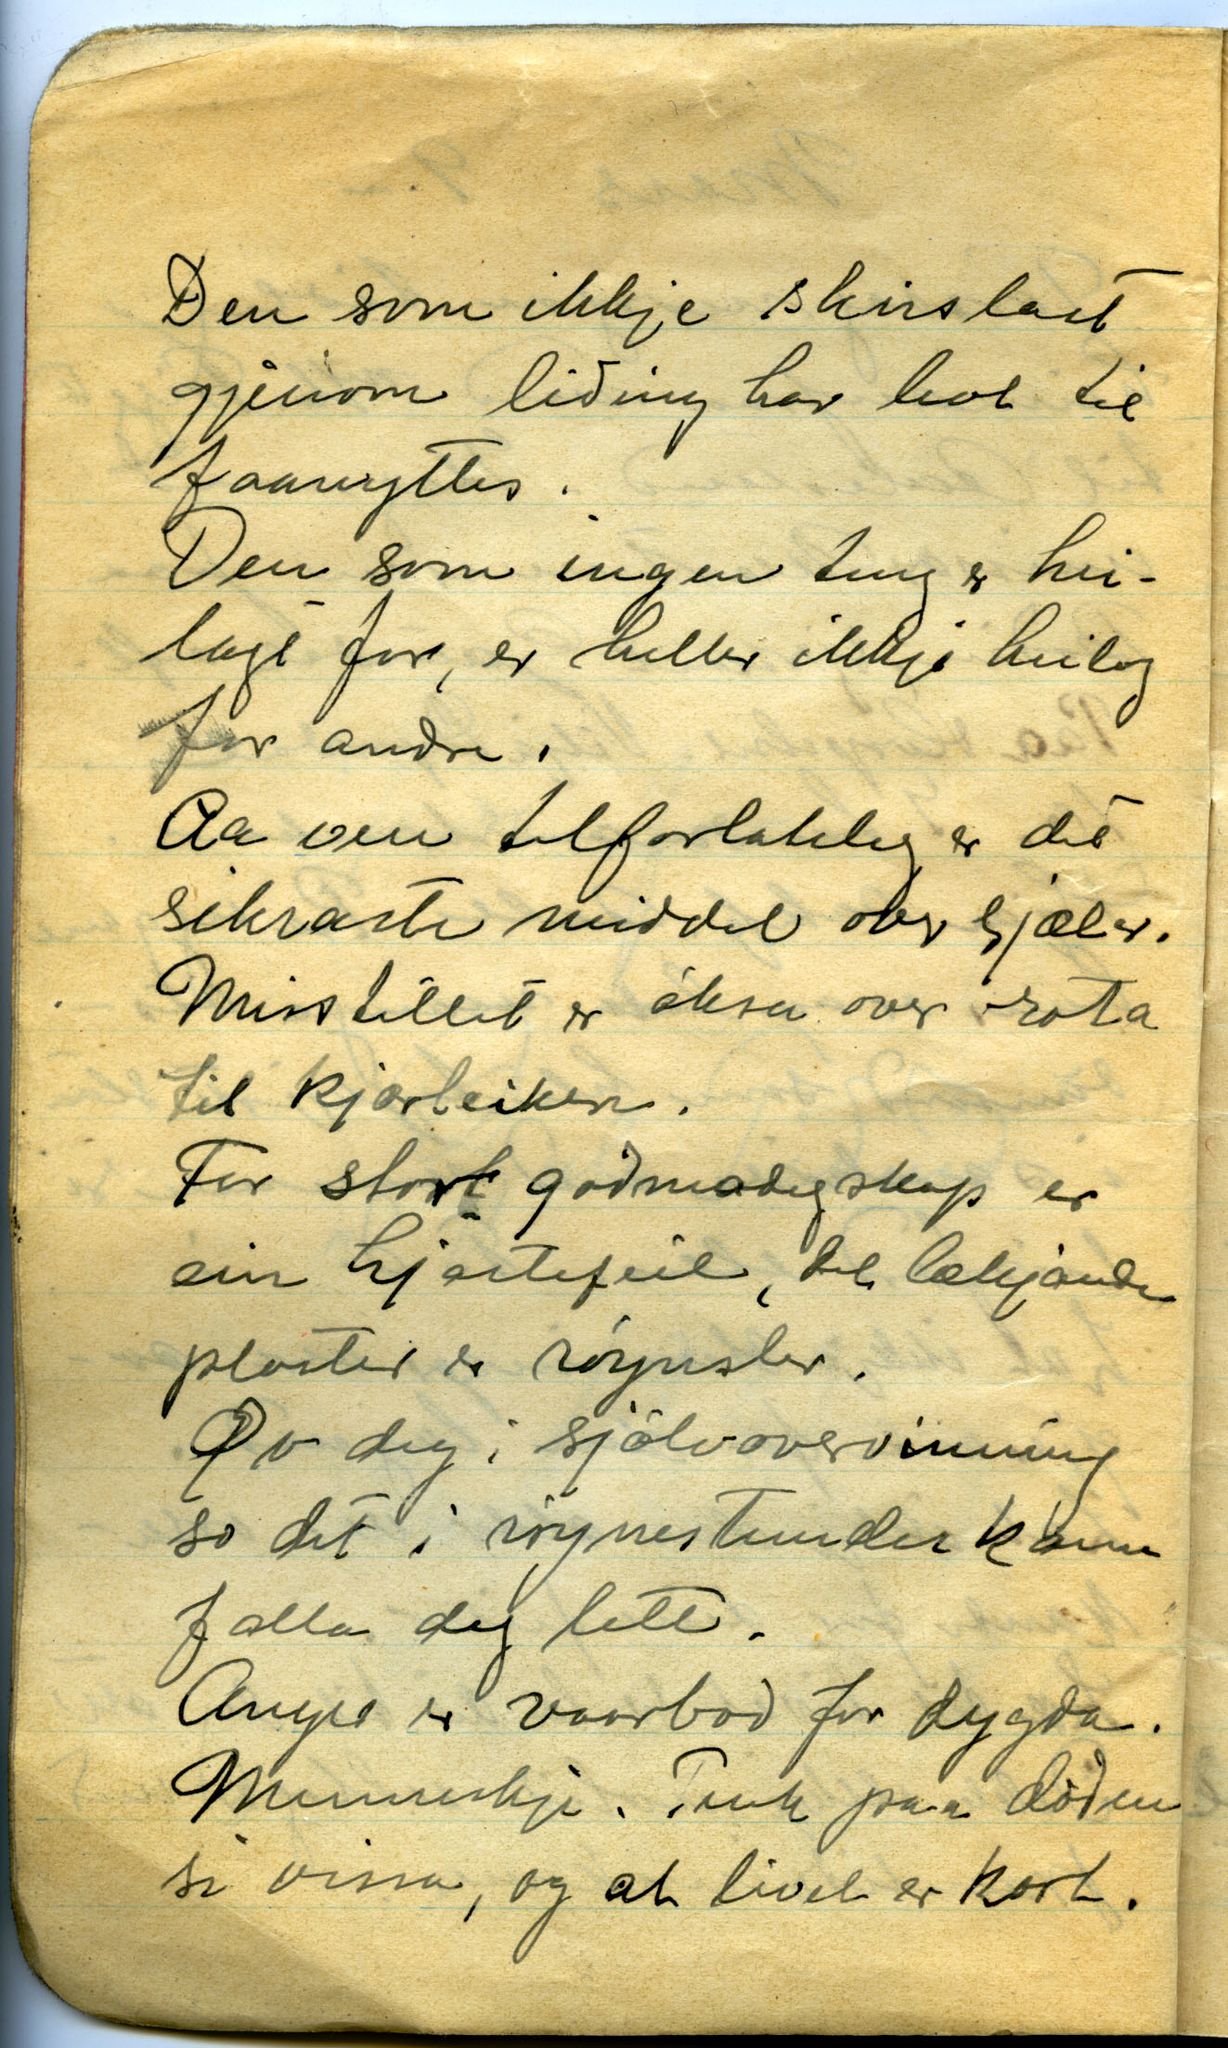 Den som ikkje skirslast
gjenom liding har levt til
faanyttes.
Den som ingen ting er hei-
lagt for, er heller ikkje heilag
for andre.
Aa vera tilforlateleg er det
sikraste middel over sjæler.
Misstillit er øksa over rota
til kjærleiken.
For stort godmodigskap er
ein hjartefeil, det lækjande
plaster er røynsler.
Øv deg i sjølvovervinning
so det i røynestunder kann
falla deg lett.
Anger er vaarbod for dygda.
Menneskje. Tenk paa døden
si vissa, og at livet er kort.